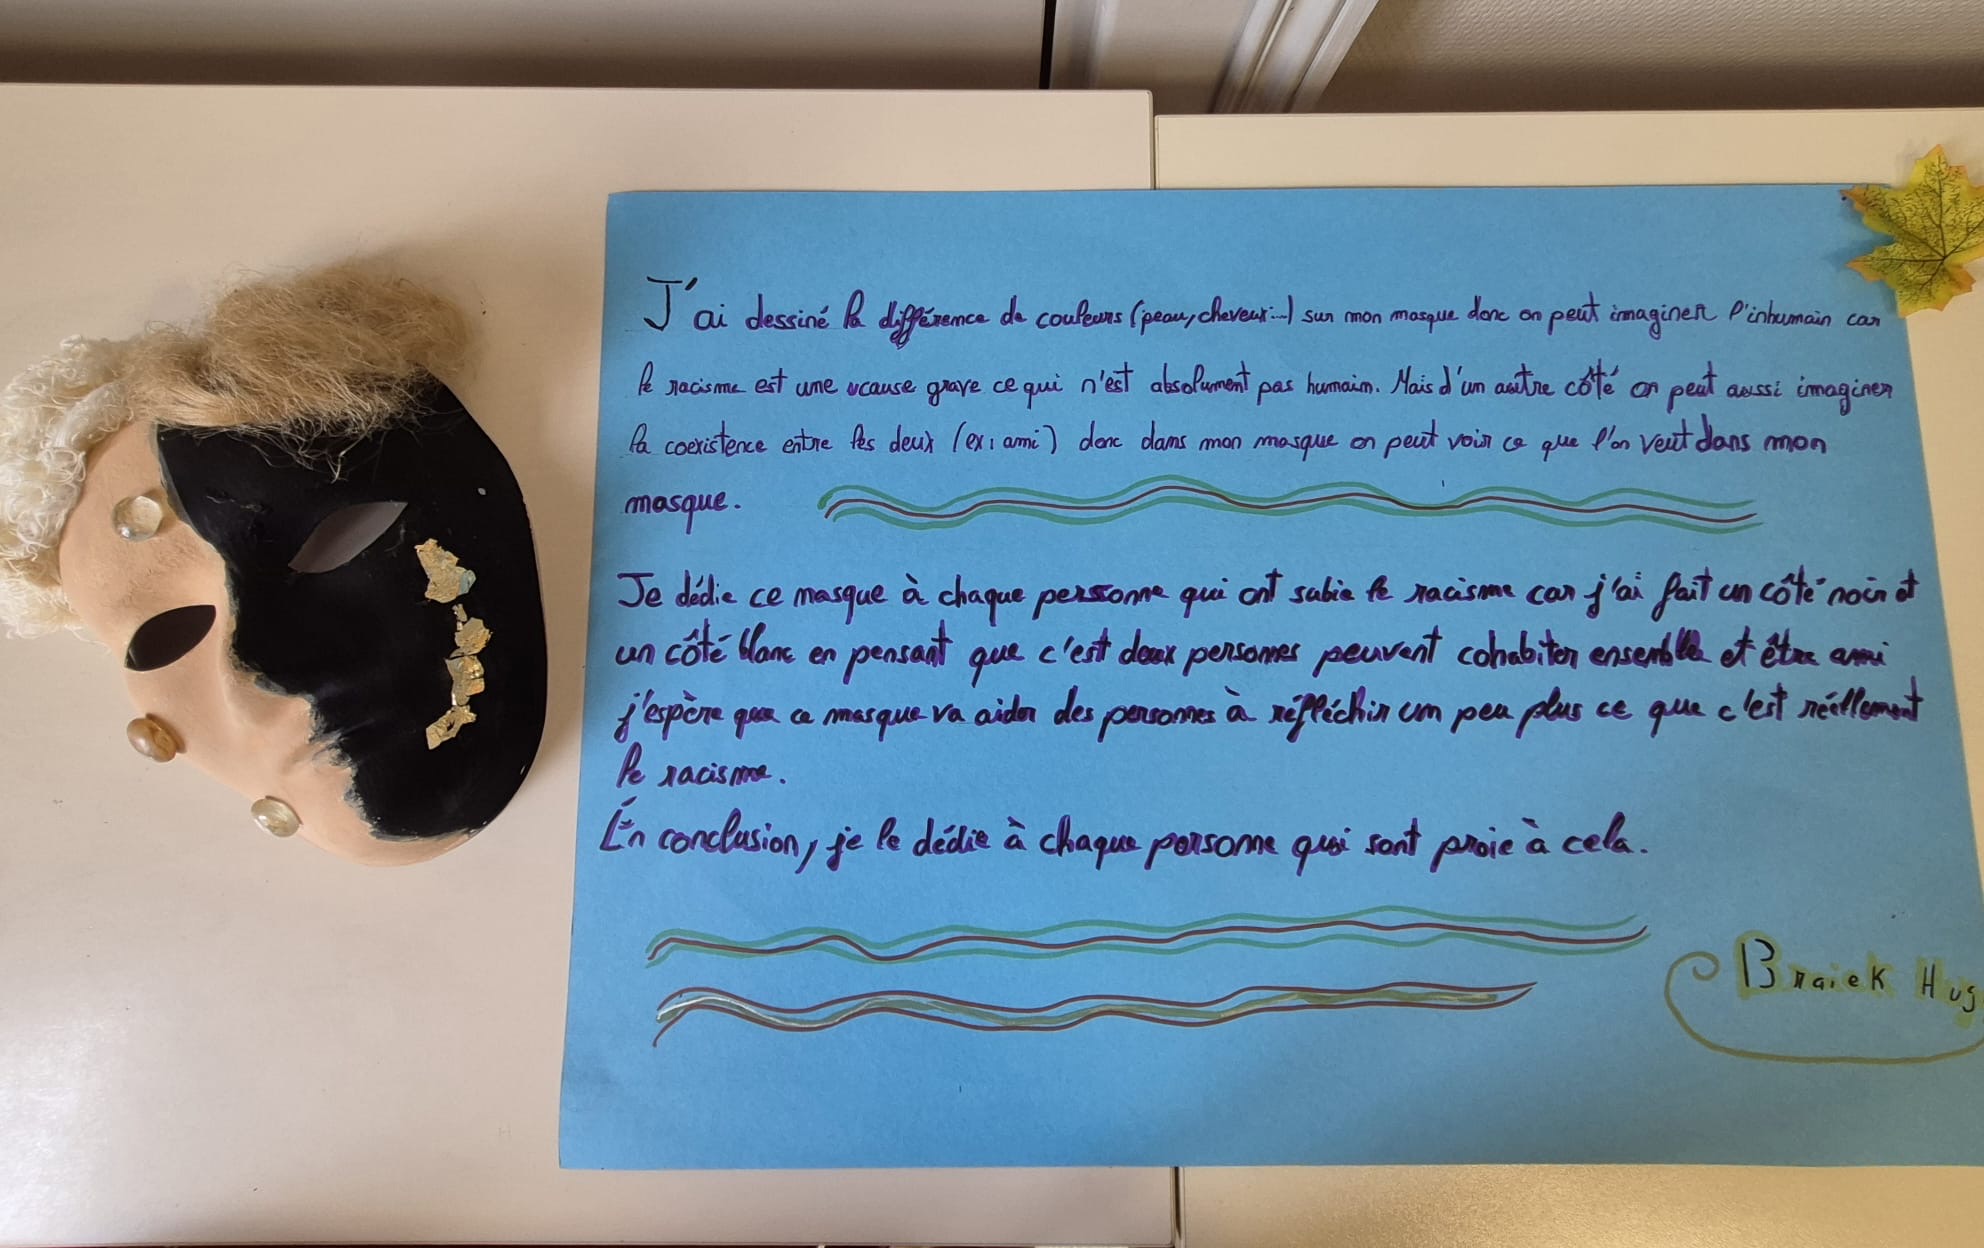 J'ai dessiné la différence de couleurs (peau, cheveux...) sur mon masque donc on peut imaginer l'inhumain car
le racisme est une cause grave ce qui n'est absolument pas humain. Mais d'un autre côté on peut aussi imaginer
la coexistence entre les deux (ex: ami) donc dans mon masque on peut voir ce que l'on veut dans mon
masque.
Je dédie ce masque à chaque personne qui ont subie le racisme car j'ai fait un côté noir et
un côté blanc en pensant que c'est deux personnes peuvent cohabiter ensemble et être ami
j'espère que ce masque va aider des personnes à réfléchir um peu plus ce que c'est réellement
le racisme.
Én conclusion, je le dédie à chaque personne qui sont proie à cela.
Braiek Hug